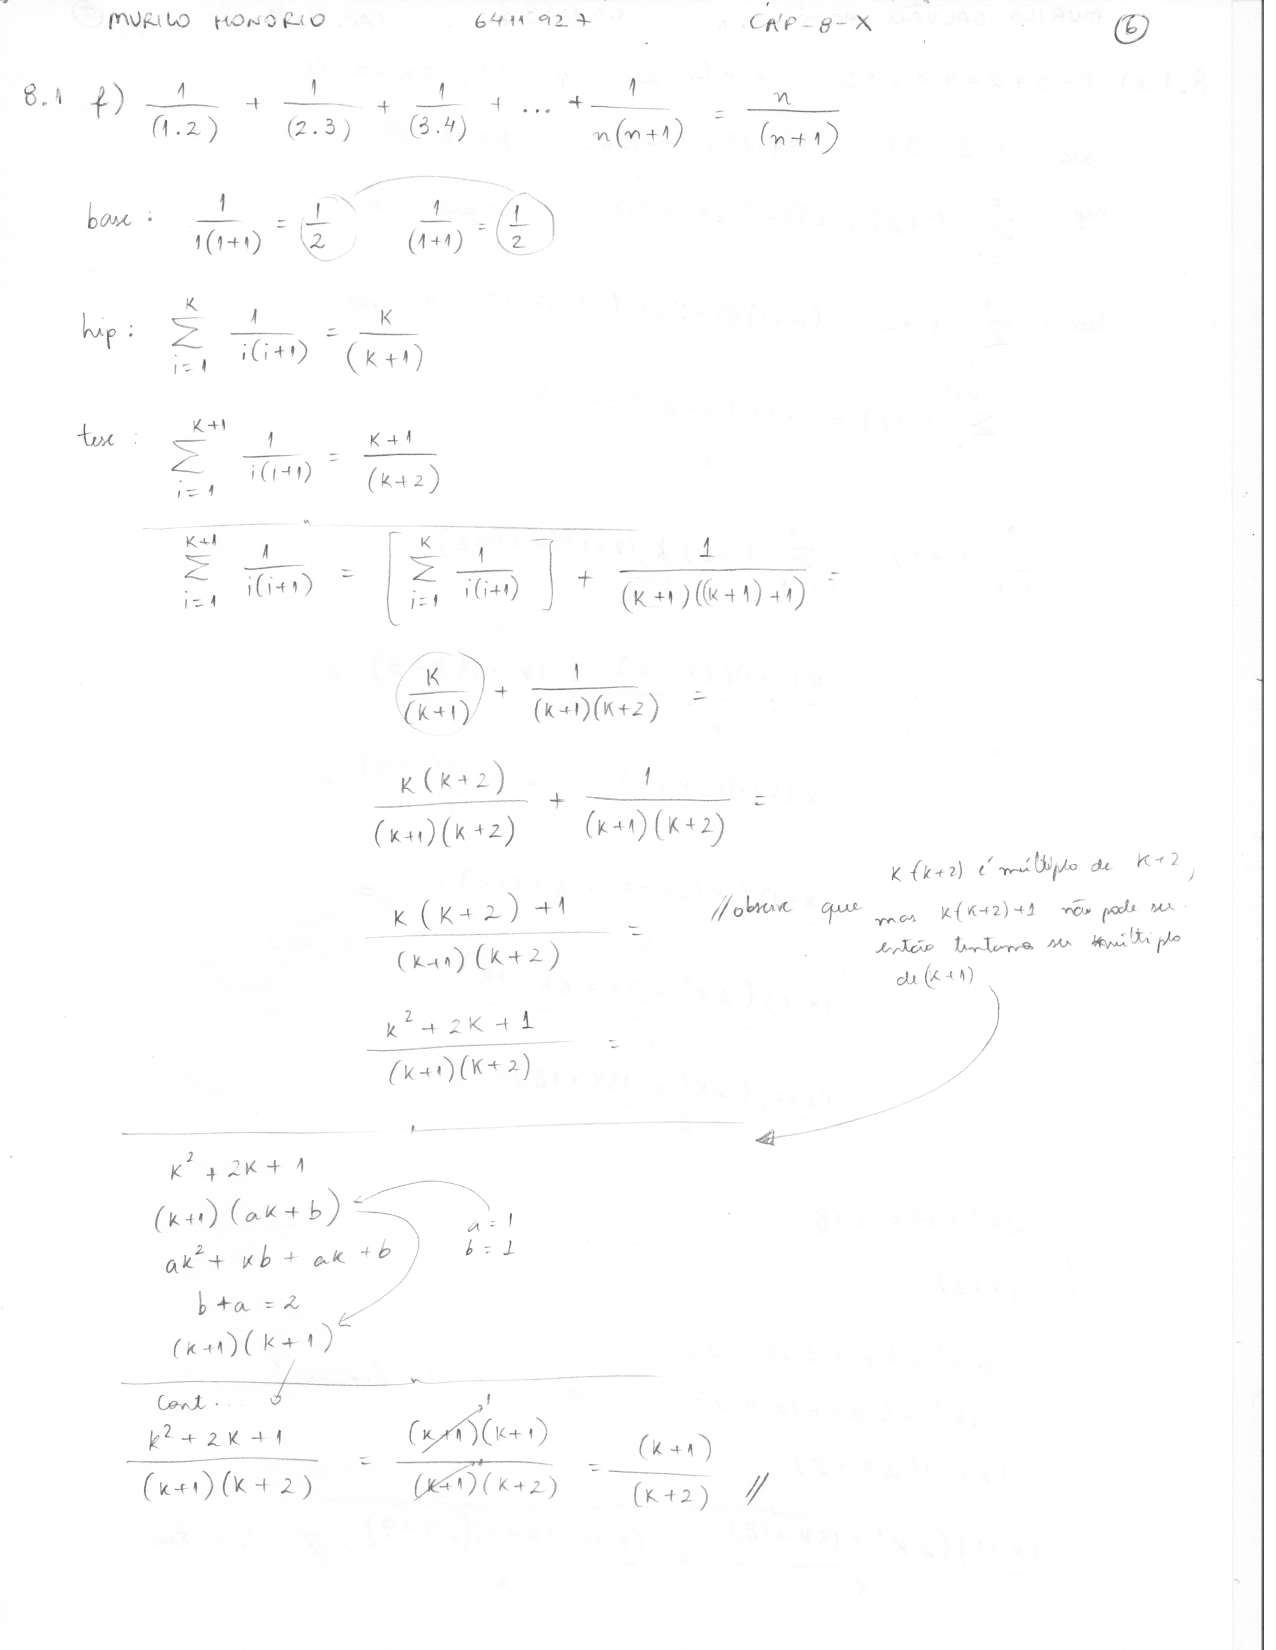 MURILO HONORIO 6411927 CAP-8-X 6
8.1 f) 1/(1.2) + 1/(2.3) + 1/(3.4) + ... + 1/n(n+1) = n/(n+1)
base: 1/1(1+1) = 1/2 1/(1+1) = 1/2
hip: Σ_{i=1}^{K} 1/i(i+1) = K/(K+1)
tese: Σ_{i=1}^{K+1} 1/i(i+1) = K+1/(K+2)
Σ_{i=1}^{K+1} 1/i(i+1) = [Σ_{i=1}^{K} 1/i(i+1)] + 1/(K+1)((K+1)+1) =
K/(K+1) + 1/(K+1)(K+2) =
K(K+2)/(K+1)(K+2) + 1/(K+1)(K+2) =
K(K+2)+1/(K+1)(K+2) =
//observe que K(K+2) é múltiplo de K+2,
mas K(K+2)+1 não pode ser
então tentamos ser múltiplo
de (K+1)
K²+2K+1/(K+1)(K+2) =
K²+2K+1
(K+1)(aK+b)
a=1
b=1
aK²+Kb+aK+b
b+a=2
(K+1)(K+1)
Cont...
K²+2K+1/(K+1)(K+2) = (K+1)(K+1)/(K+1)(K+2) = (K+1)/(K+2) //